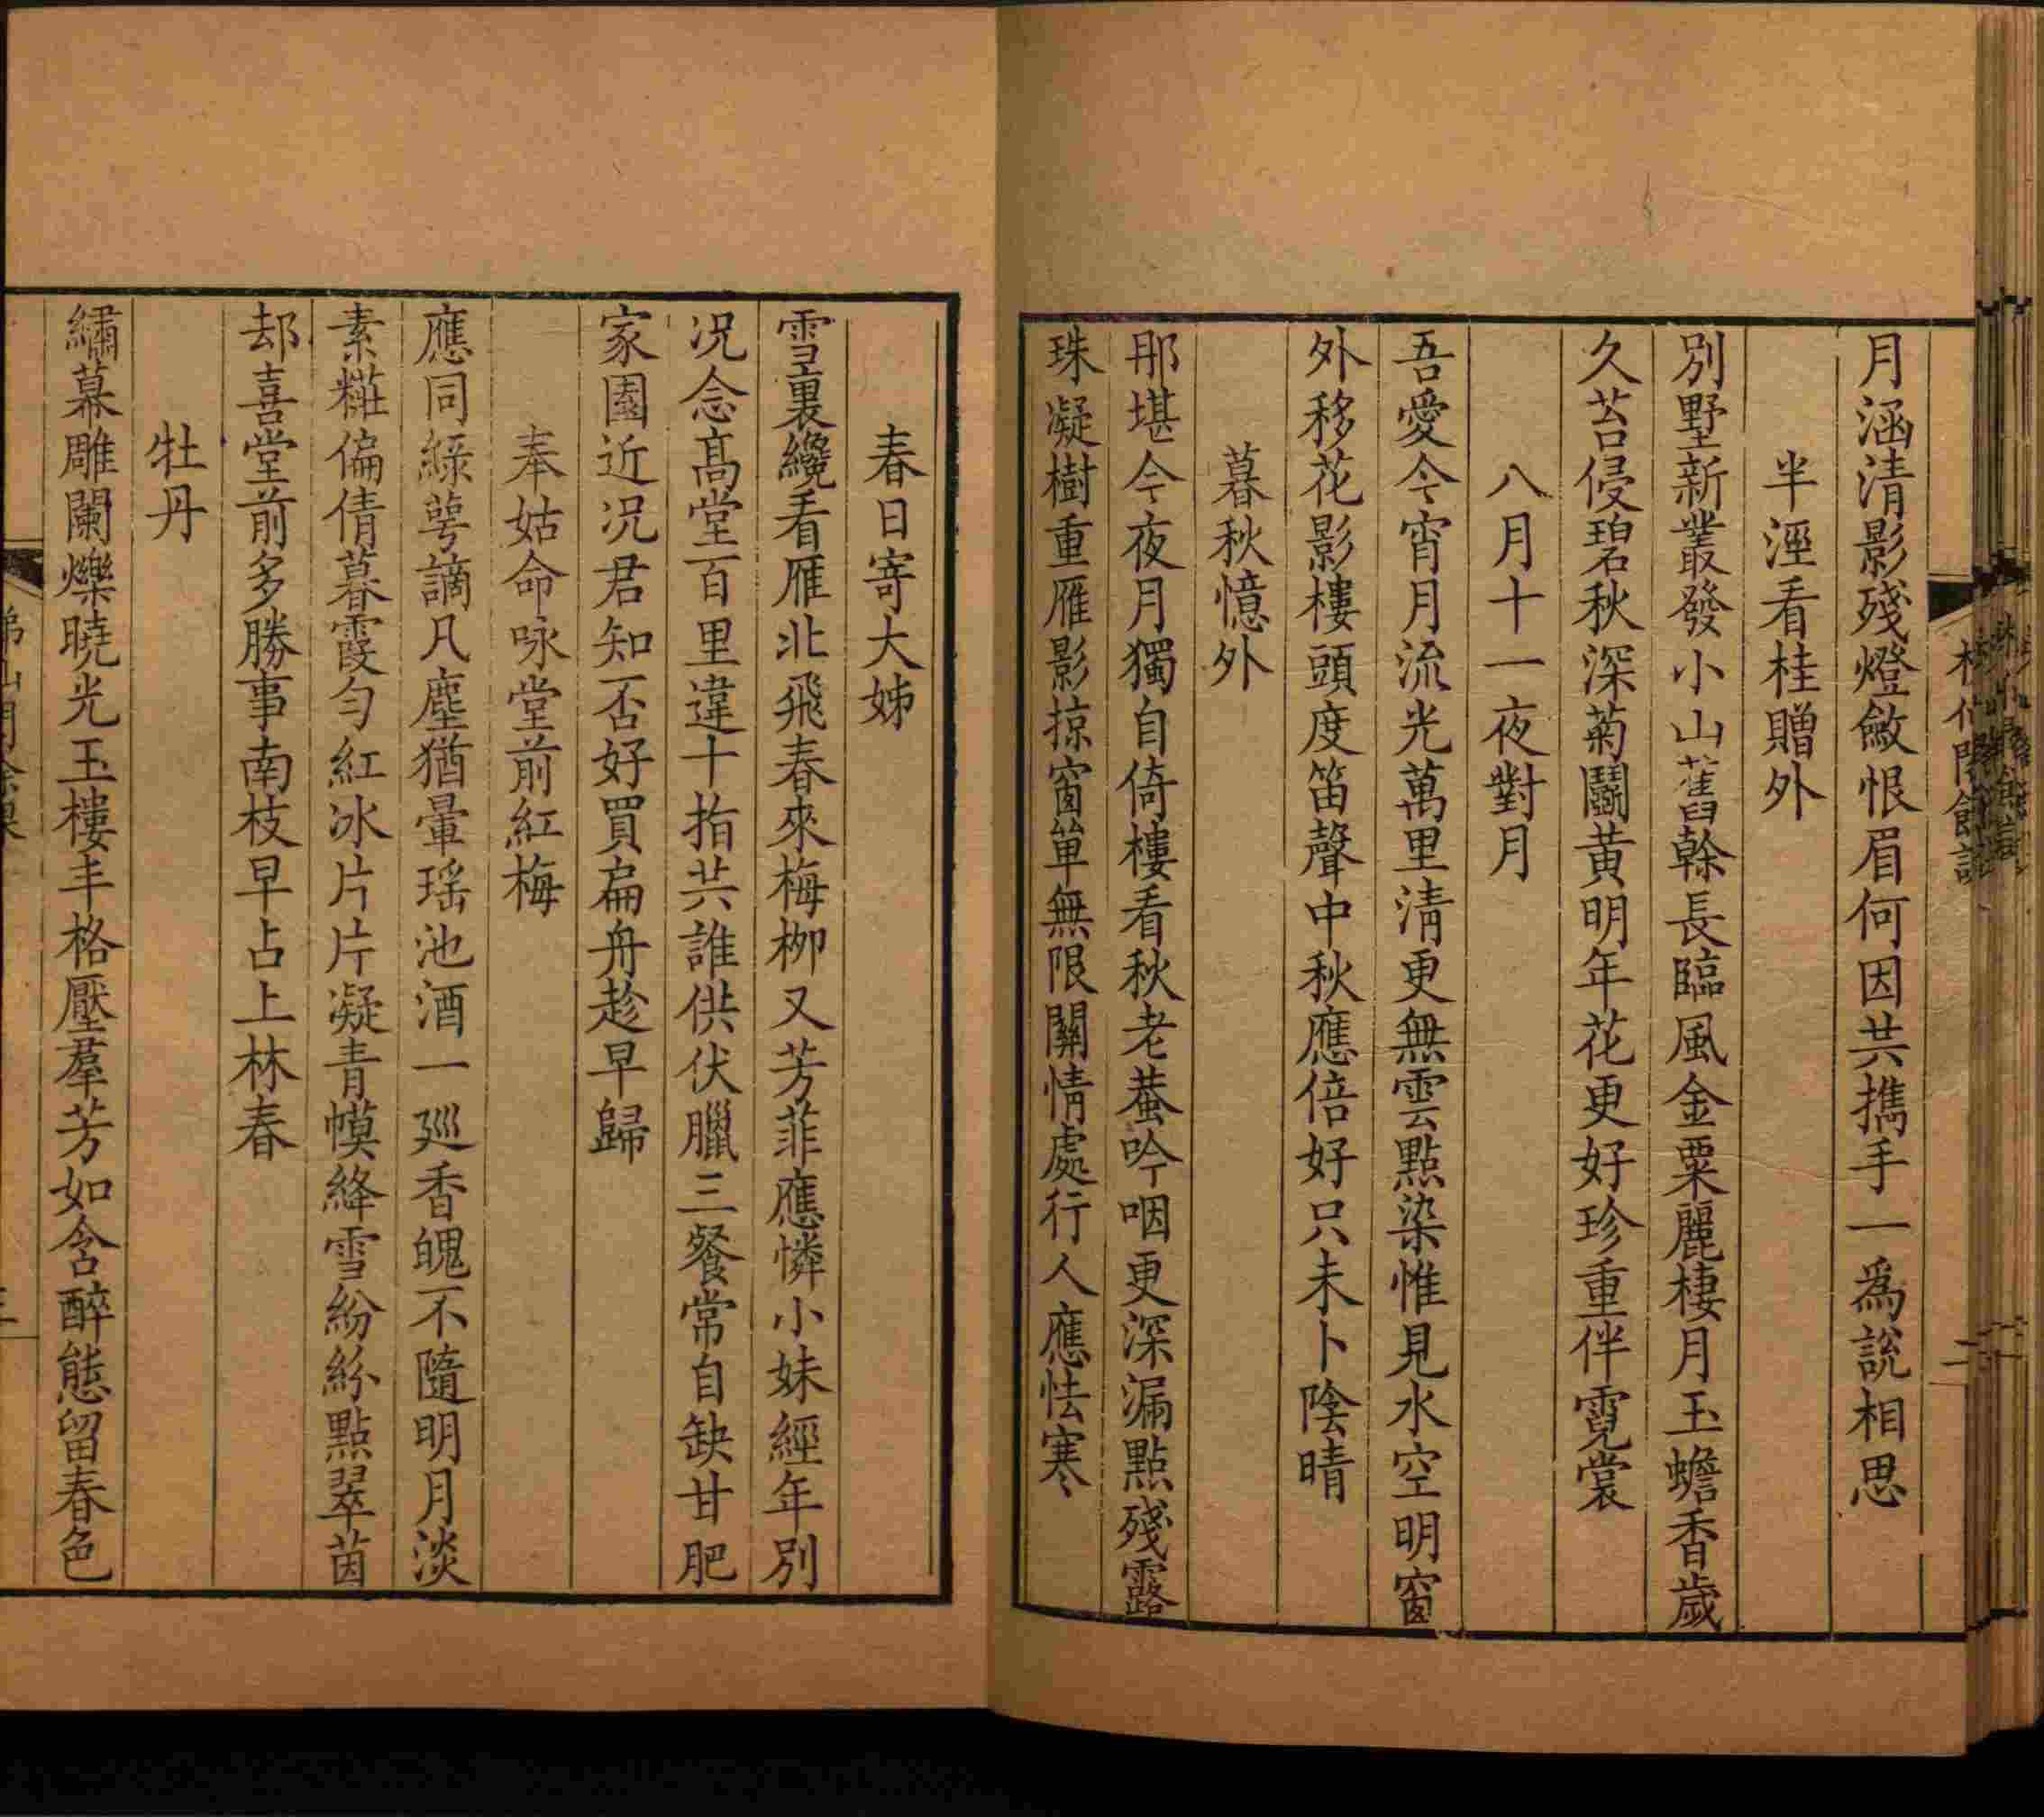 月涵清影殘燈斂恨眉何因共攜手一為說相思
半涇看桂贈外
別墅新叢發小山舊幹長臨風金粟麗棲月玉蟾香歲
久苔侵碧秋深菊鬬黃明年花更好珍重伴霓裳
八月十一夜對月
吾愛今宵月流光萬里清更無雲點染惟見水空明窗
外移花影樓頭度笛聲中秋應倍好只未卜陰晴
暮秋憶外
那堪今夜月獨自倚樓看秋老蛬吟咽更深漏點殘露
珠凝樹重雁影掠窗單無限關情處行人應怯寒
春日寄大姊
雪裏纔看雁北飛春來梅柳又芳菲應憐小妹經年別
况念高堂百里違十指共誰供伏臘三餐常自缺甘肥
家園近况君知否好買扁舟趁早歸
奉姑命咏堂前紅梅
應同綠萼謫凡塵猶暈瑤池酒一廵香魄不隨明月淡
素糚偏倩暮霞勻紅冰片片凝青幙絳雪紛紛點翠茵
却喜堂前多勝事南枝早占上林春
牡丹
繡幕雕闌爍曉光玉樓丰格壓羣芳如含醉態留春色